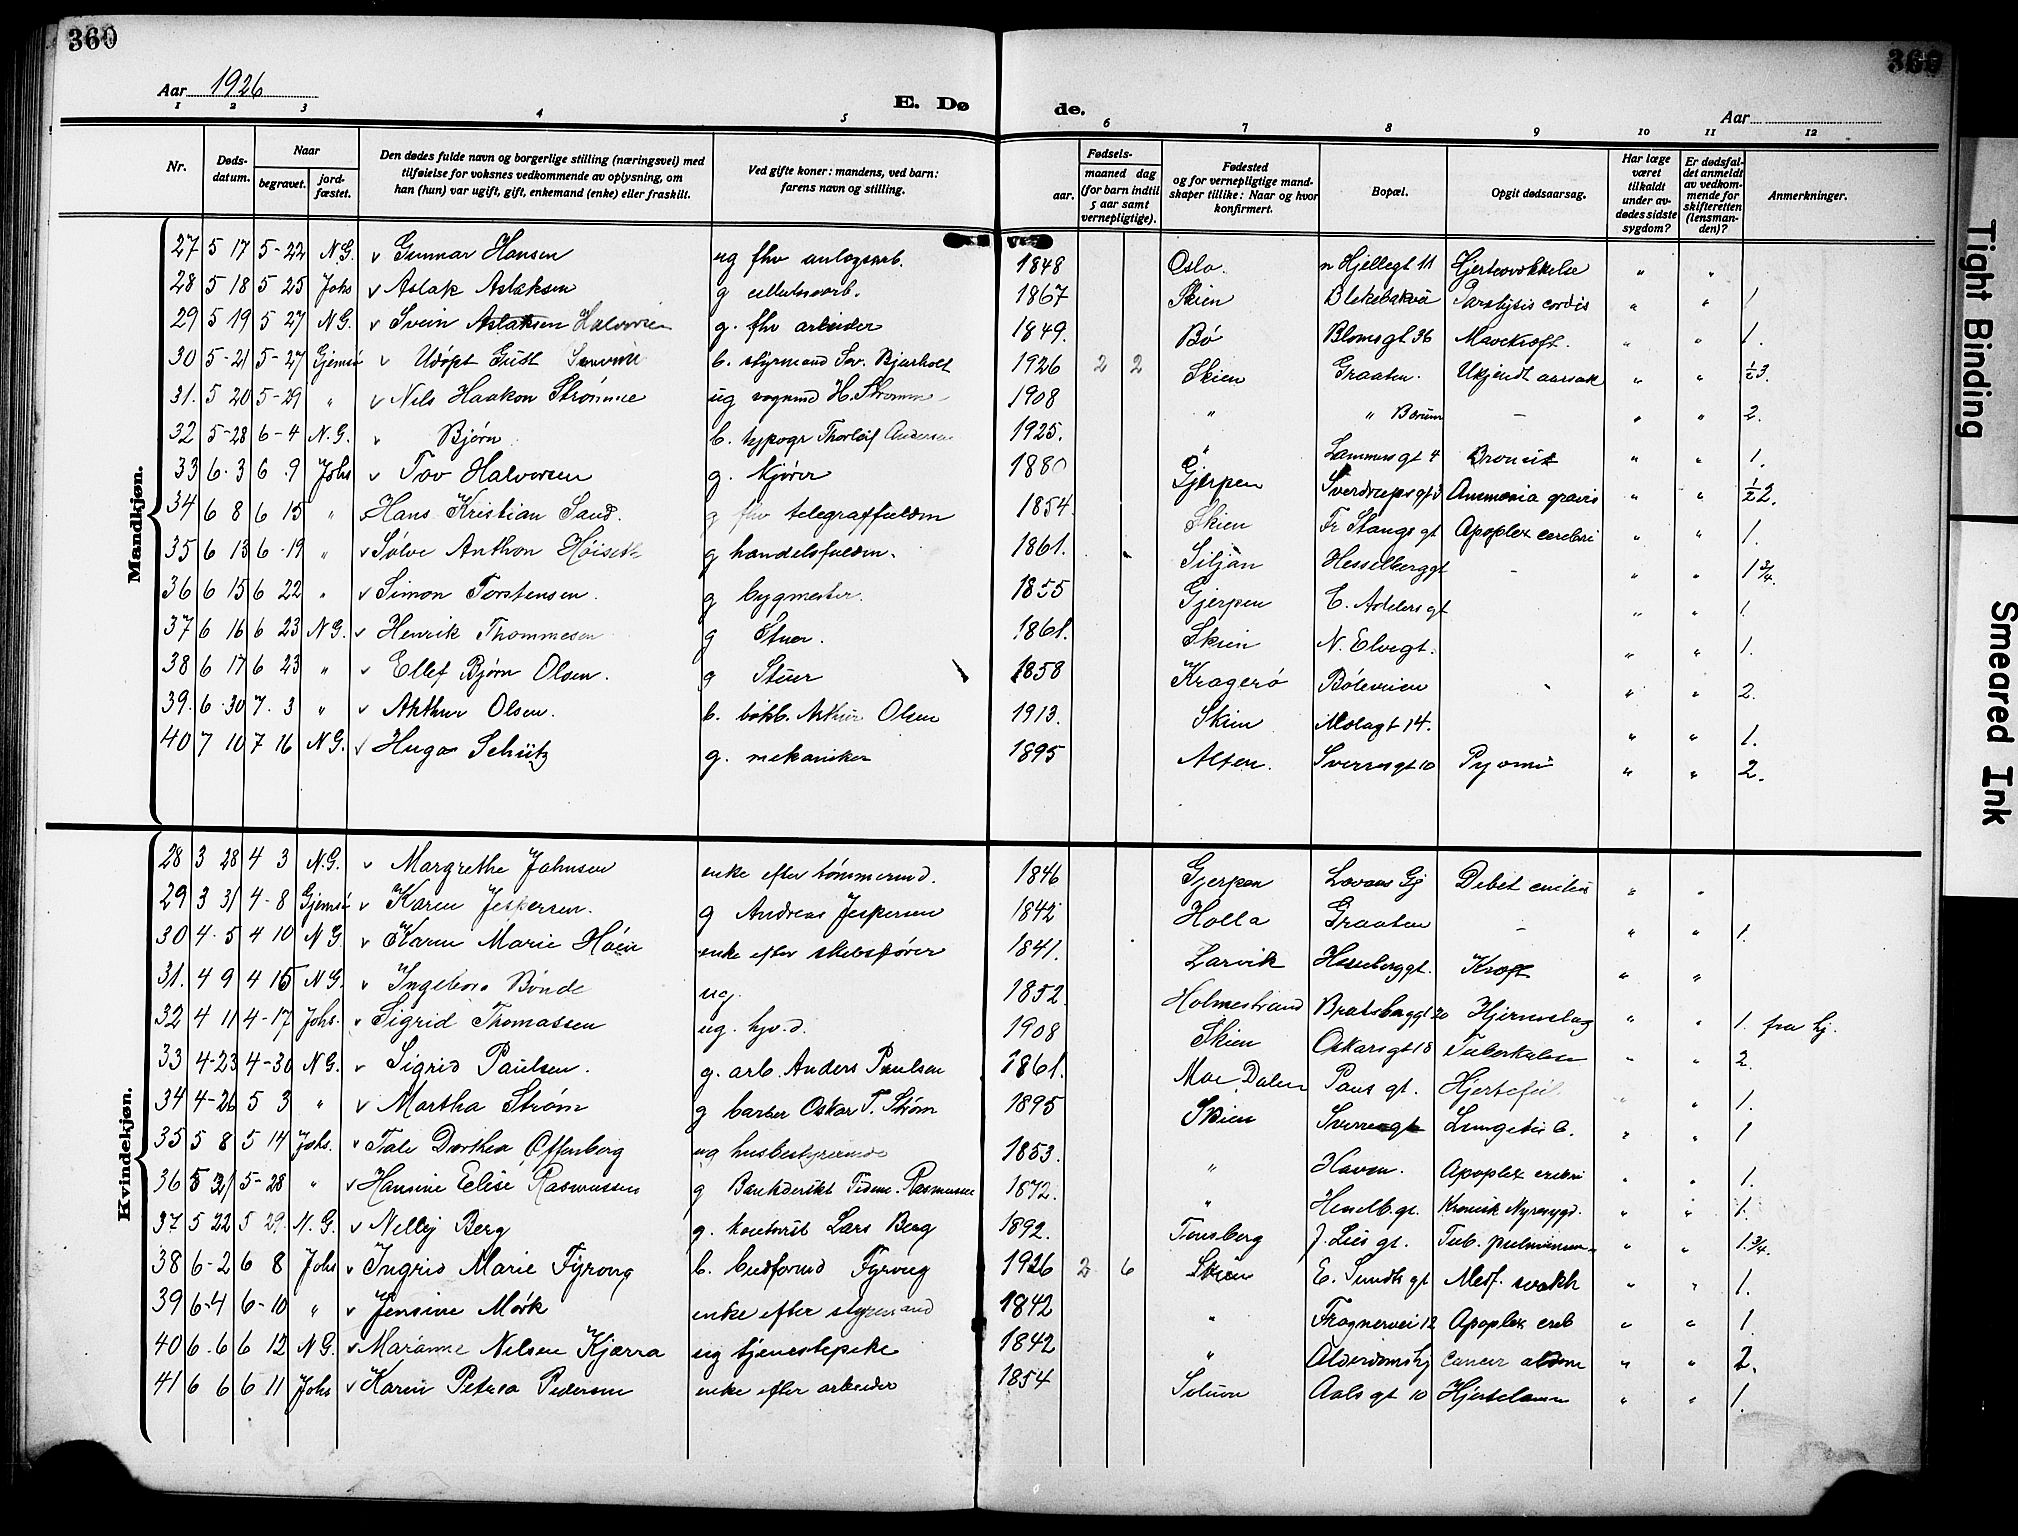 360
360
Aar 1926
E. Døde.
Aar
1 2 3 4 5 6 7 8 9 10 11 12
Nr.
Dødsdatum.
Naar
begravet.
jordfæstet.
Den dødes fulde navn og borgerlige stilling (næringsvei) med tilføielse for voksnes vedkommende av oplysning, om han (hun) var ugift, gift, enkemand (enke) eller fraskilt.
Ved gifte koner: mandens, ved barn: farens navn og stilling.
Fødsels-
aar.
maaned dag (for barn indtil 5 aar samt vernepligtige).
Fødested og for vernepligtige mandskaper tillike: Naar og hvor konfirmert.
Bopæl.
Opgit dødsaarsag.
Har læge været tilkaldt under avdødes sidste sygdom?
Er dødsfaldet anmeldt av vedkommende for skifteretten (lensmanden)?
Anmerkninger.
Mandkjøn.
27 5 17 5-22 N.G. v Gunnar Hansen ug fhv anlegsarb. 1848 Oslo. n Hjellegt 11 " "
28 5 18 5 25 Johs v Aslak Aslaksen g cellulosearb. 1867 Skien Paralysis cordis " " 1
29 5 19 5 27 N.G. v Svein Aslaksen Halvorsen g. fhv arbeider 1849. Bø Blomsgt 36 Mavekræft. " " 1.
30 5-21 5-27 Gjemsø v b. styrmand 1926 2 2 Skien Graaten. Ukjendt aarsak " " ½3.
31. 5 20 5-29 " v Nils Haakon Strømme ug vognmd H. Strømme 1908 " " Bærum - " " 2.
32 5-28 6-4 N.G. v Bjørn b. typogr Thorleif Andersen 1925. " Lammersgt 4 " " 1.
33 6.3 6 9 Johs v Tov Halvorsen g. kjører 1880 Gjerpen Sverdrupsgt 3 gravis " " ½2.
34 6 8 6 15 " Hans Kristian Sand. g fhv telegraffuldm 1854. Skien Fr Stangs gt Apoplex cerebri " " 1.
35 6 13 6-19 " v Sølve Anthon Høiseth g handelsfuldm. 1861. Siljan Hesselberggt - " " 1¾.
36 6 15 6 22 " v Simon Torstensen. g bygmester. 1855 Gjerpen C. Adelersgt " " 1.
37 6 16 6 23 N.G. v Henrik Thommesen g Stuer. 1861. Skien N. Elvegt. " " 1.
38 6 17 6 23 " v Ellef Bjørn Olsen. g Stuer 1858 Kragerø Bøleveien " " 2.
39. 6.30 7.3 " v Arthur Olsen. b. bokb. Arthur Olsen 1913. Skien Molagt 14. " " 1.
40 7 10 7 16 N.G. v Hugo Schütz g. mekaniker 1895 Alten. Sverresgt 10 Pyæmi " " 2.
Kvindekjøn.
28 3 28 4 3 N.G. v Margrethe Johnsen enke efter tømmermd. 1846 Gjerpen Debet " "
29 3 31 4-8 Gjemsø v Karen Jespersen. g Andreas Jespersen 1842 Holla Graaten - " " 1.
30 4.5 4 10 N G. v Karen Marie Høen enke efter skibsfører 1841. Larvik Hesselberggt. Kræft " "
31. 4 9 4 15 N G. v Ingeborg Bonde ug. 1852. Holmestrand Bratsberggt 20 Hjerneslag " " 1. fra hj.
32 4 11 4-17 Johs. v Sigrid Thomassen ug. hjv.d. 1908 Skien Oskarsgt 18 Tuberkulose " " 2.
33 4-23 4-30 N G. v Sigrid Paulsen. g. arb. Anders Paulsen 1861. Moe, Dalen Paus gt. Hjertefeil. " " 1.
34 4-26 5 3 " v Martha Strøm g barber Oskar T. Strøm 1895 Skien Sverresgt " " 1
35 5 8 5 14 Johs. v Tale Dorthea Offenberg ug husbestyrerinde 1853. " Haven. Apoplex cerebri " " 1.
36 5 21 5-28 " v Hansine Elise Rasmussen g Rasmussen 1872. " Hesselb.gt. Kronisk Nyresygd. " " 1.
37 5 22 5 29 N.G. v Nelly Berg g. kontorist Lars Berg 1892. Tønsberg J. Lies gt. Tub. pulmonum " " 1.¾.
38 6-2 6 8 Johs v Ingrid Marie Fyrveg b. Fyrveg 1926 2 6 Skien E. Sundts gt Medf. svakh " " 1.
39 6-4 6-10 " v Jensine Mørk enke efter styrmand 1842 " Frognervei 12 Apoplex cereb " " 1.
40 6.6 6 12 N G. v Marianne Nilsen Kjærra ug tjenestepike 1842 " Alderdomshj Cancer " " 2.
41 6 6 6 11 Johs v Karen Petrea Pedersen enke efter arbeider 1854 Solum Aals gt 10 " " 1.
Tight Binding
Smeared Ink